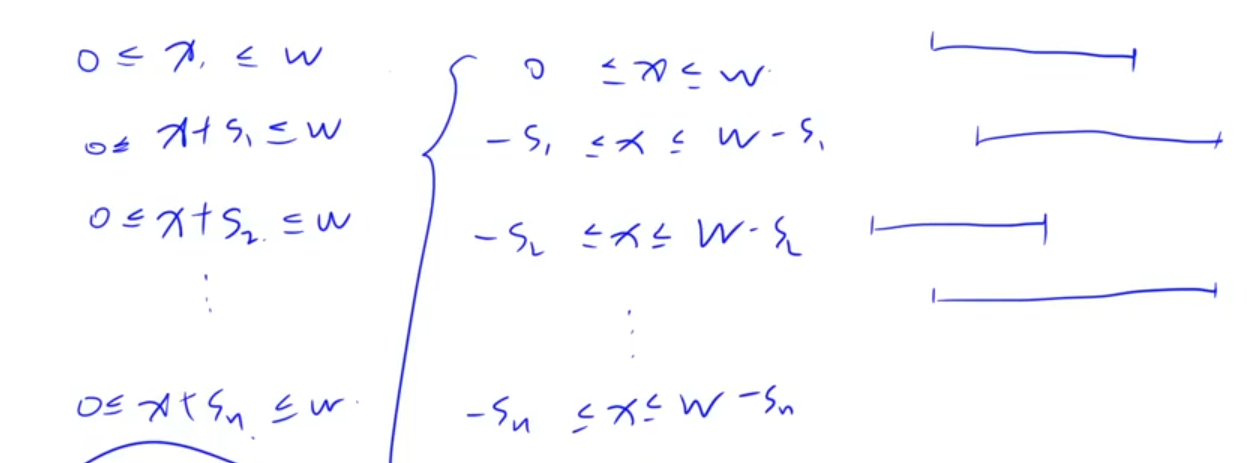 0 ≤ x, ≤ w
0 ≤ x + s₁ ≤ w
0 ≤ x + s₂ ≤ w
⋮
0 ≤ x + sₙ ≤ w
0 ≤ x ≤ w
-s₁ ≤ x ≤ w - s₁
-s₂ ≤ x ≤ w - s₂
⋮
-sₙ ≤ x ≤ w - sₙ